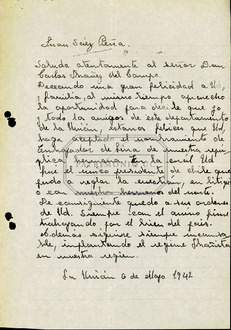 Juan Saez Peña.
Saluda atentamente al señor Don
Carlos Ibañez del Campo.
Deceando una gran felicidad a Ud,
y familia, al mismo tiempo, aprovecho
la oportunidad para decirle que yo
y todo la amigos de este departamento
de la Unión, estamos felices que Ud
haga aceptado el nombramiento de
Embajador de fina de nuestra repú
plica hermana. En la cual Ud
fue el unico presidente de chile que
pudo a reglar la cuestion, en litigio
con nuestra hermanos del norte.
De consiguiente quedo a sus ordenes
de Ud. Siempre con el animo firme
trabajando por el bien del pais.
Ademas sigirse siempre incansa
ble, implantando el regimen Ibañista
en nuestra region.
La Unión 6 de Mayo 1942